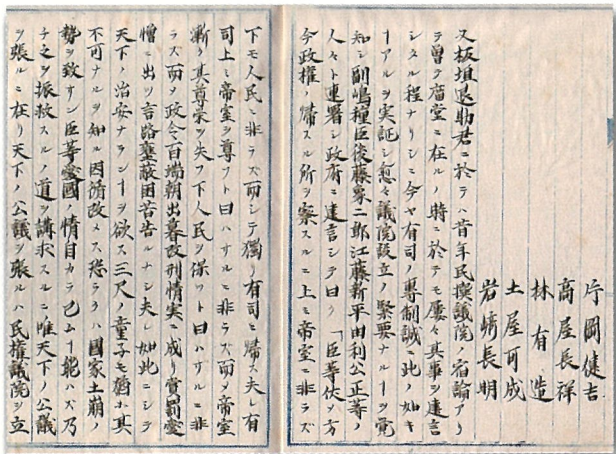 片岡健吉
高屋長祥
林有造
土屋可成
岩崎長明
又板垣退助君ニ於テハ昔年民撰議院ノ宿論アリ
ヲ曽テ廟堂ニ在ルノ時ニ於テモ屡々其事ヲ建言
シタル程ナリシニ今ヤ有司ノ専制誠ニ此ノ如キ
ーアルヲ実証シ愈々議院設立ノ緊要ナルーヲ覚
知シ副嶋種臣後藤象二郎江藤新平由利公正等ノ
人々ト連署シ政府ニ建言シテ曰ク「臣等伏シテ方
今政権ノ帰スル所ヲ察スルニ上ミ帝室ニ非ラズ
下モ人民ニ非ラズ而シテ獨リ有司ニ帰ス夫レ有
司上ミ帝室ヲ尊フト曰ハサルニ非ラズ而メ帝室
漸ク其尊栄ヲ失フ下人民ヲ保ツト曰ハサルニ非
ラズ而メ政令百端朝出暮改刑情実ニ成リ賞罰愛
憎ニ出ツ言路壅蔽困苦告ルナシ夫レ如此ニシテ
天下ノ治安ナランーヲ欲ス三尺ノ童子モ猶ホ其
不可ナルヲ知ル因循改メス恐ラクハ國家土崩ノ
勢ヲ致サン臣等愛國ノ情自カラ已ムー能ハズ乃
チ之ヲ振救スルノ道ヲ講求スルニ唯天下ノ公議
ヲ張ルニ在リ天下ノ公議ヲ張ルハ民撰議院ヲ立